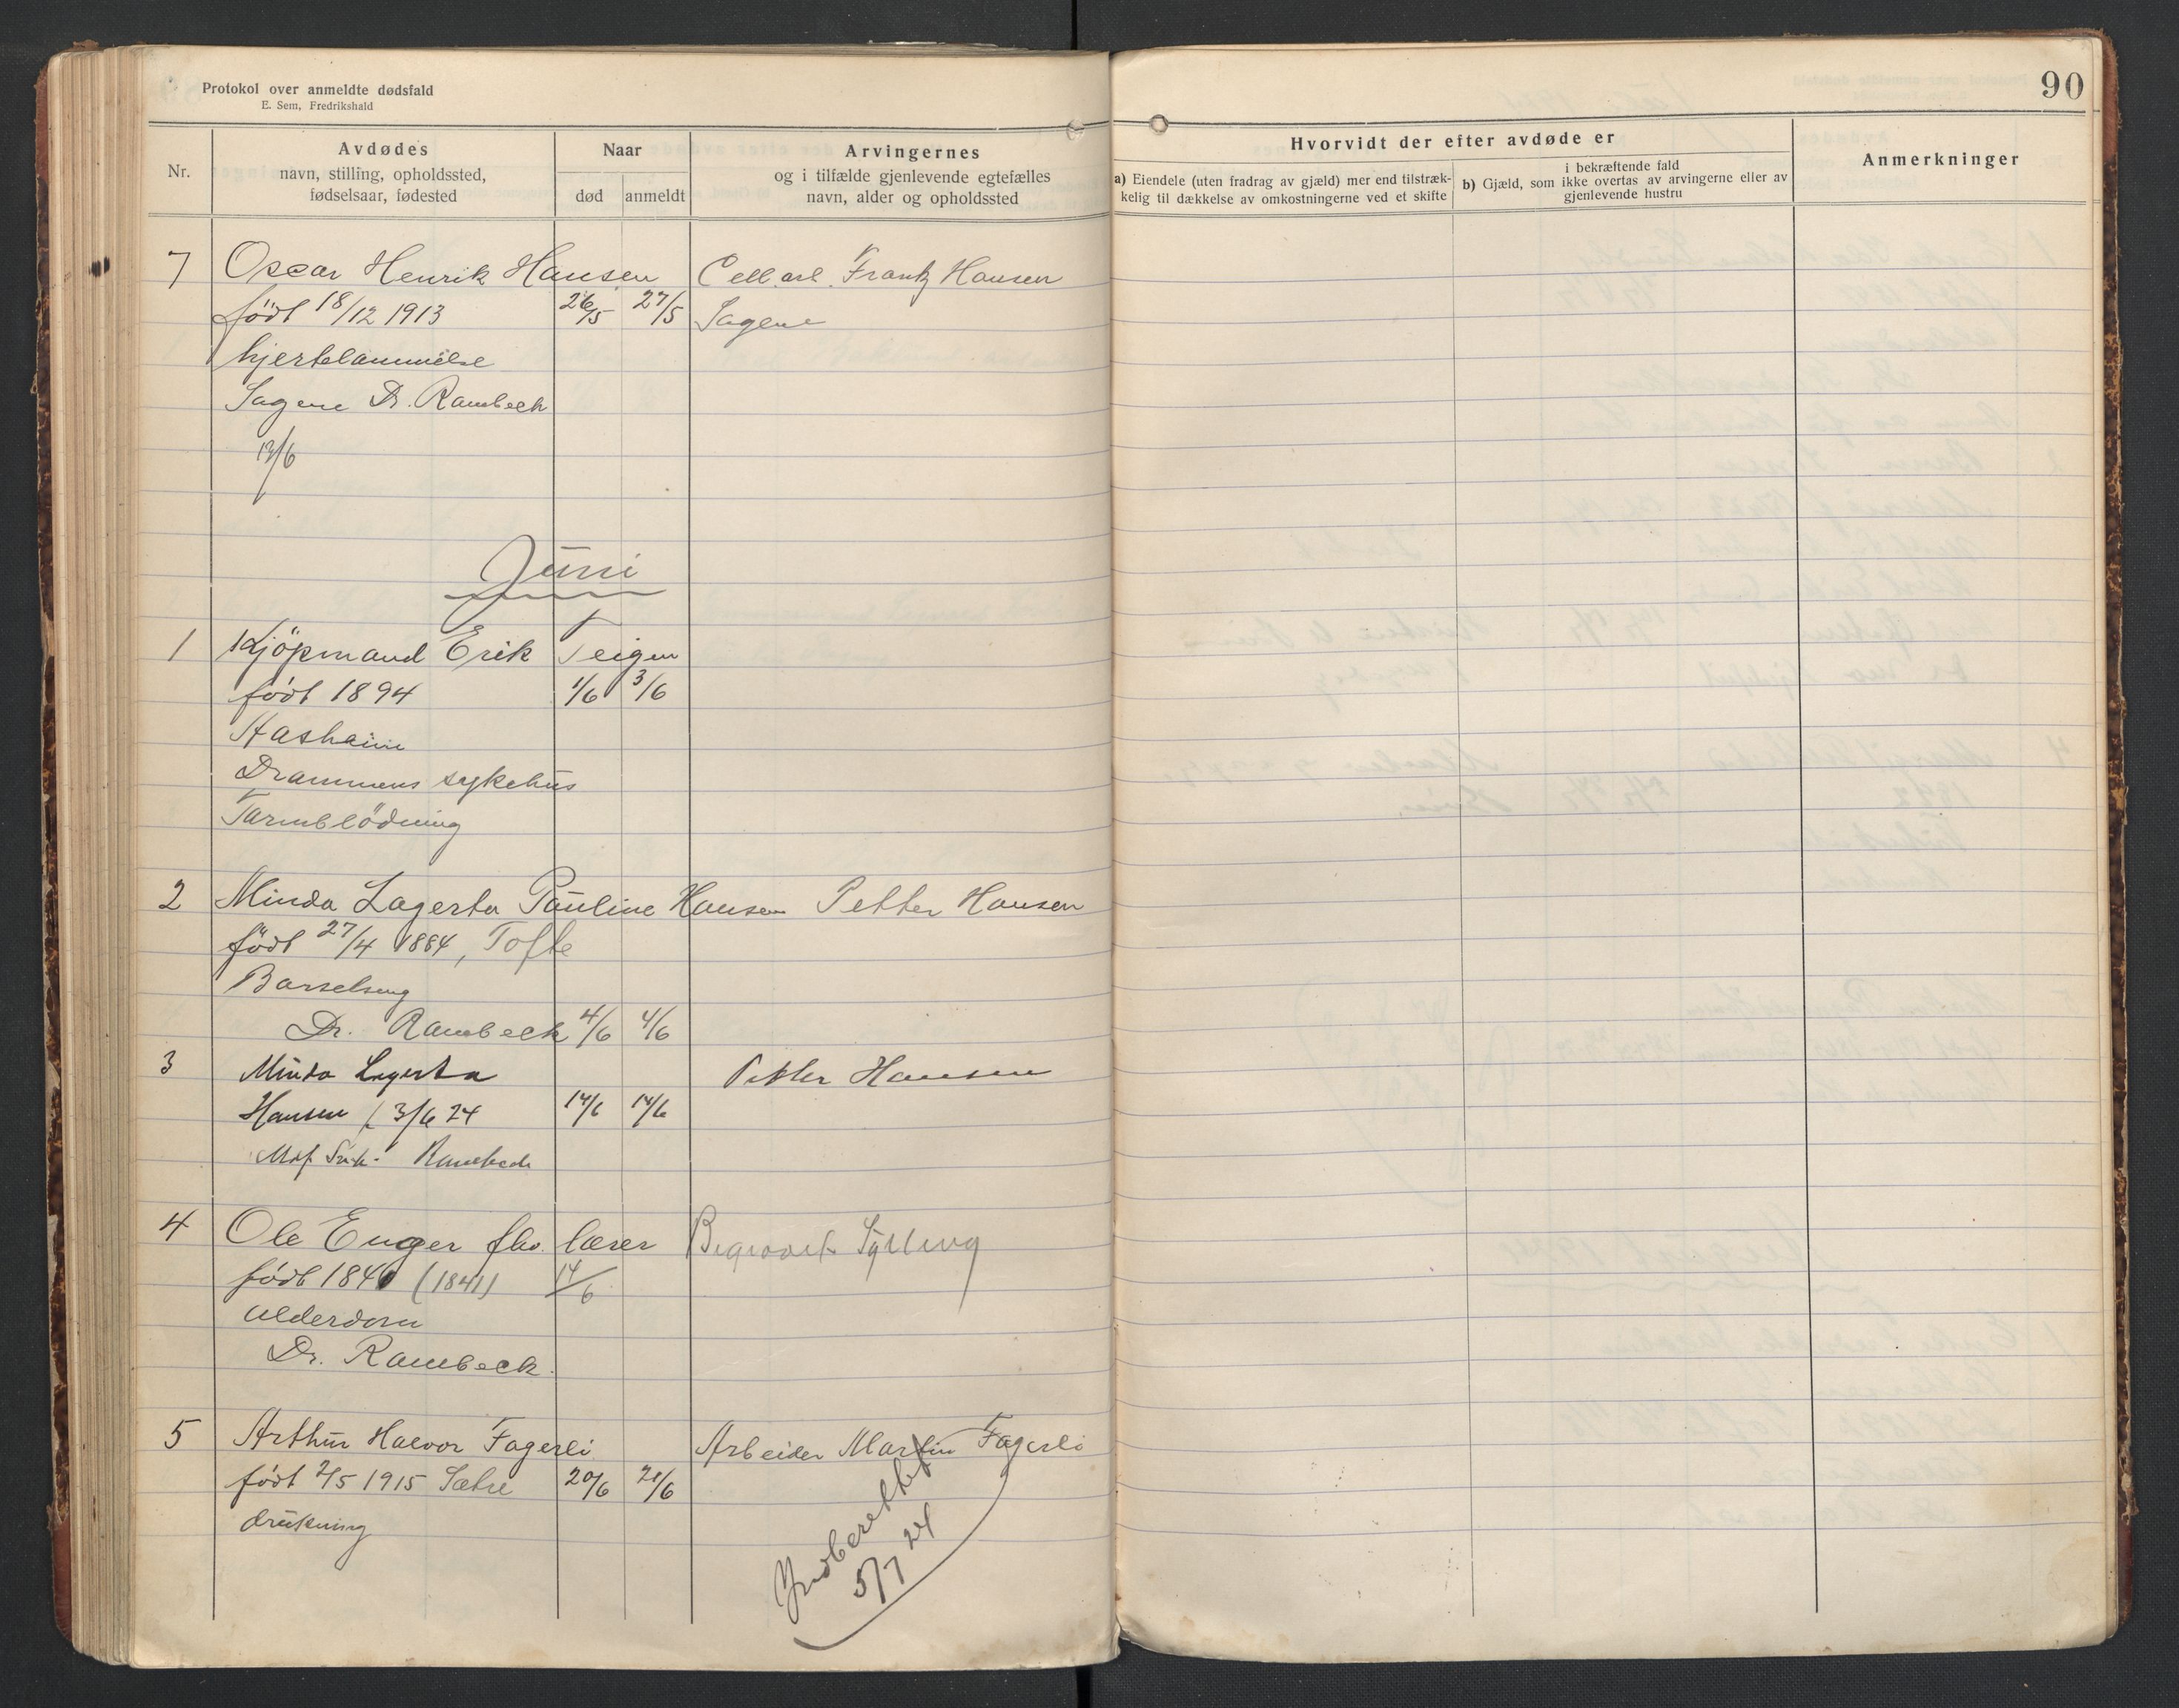 Protokol over anmeldte dødsfald
E. Sem, Fredrikshald
90
Nr.
Avdødes
navn, stilling, opholdssted,
fødselsaar, fødested
Naar
død
anmeldt
Arvingernes
og i tilfælde gjenlevende egtefælles
navn, alder og opholdssted
Hvorvidt der efter avdøde er
a) Eiendele (uten fradrag av gjæld) mer end tilstræk-
kelig til dækkelse av omkostningerne ved et skifte
i bekræftende fald
b) Gjæld, som ikke overtas av arvingerne eller av
gjenlevende hustru
Anmerkninger
7 Oscar Henrik Hansen Cell.arb. Frantz Hansen
født 18/12 1913 26/5 27/5 Sagene
hjertelammelse
Sagene Dr. Rambech
13/6
Juni
1 Kjöpmand Erik Teigen
født 1894 1/6 3/6
Aasheim
Drammens sykehus
Tarmblödning
2 Minda Lagerta Pauline Hansen Petter Hansen
född 27/4 1884, Tofte
Barselseng
Dr. Rambeck 4/6 4/6
3 Minda Lagerta Petter Hansen
Hansen f. 3/6 24 14/6 14/6
Rambech
4 Ole Enger fhv. lærer Begravet Sylling
född 1840 (1841) 14/6
Alderdom
Dr. Rambeck.
5 Arthur Halvor Fagerli Arbeider Martin Fagerli
født 2/5 1915 Sætre 20/6 21/6
drukning
Indberettet
5/7 24